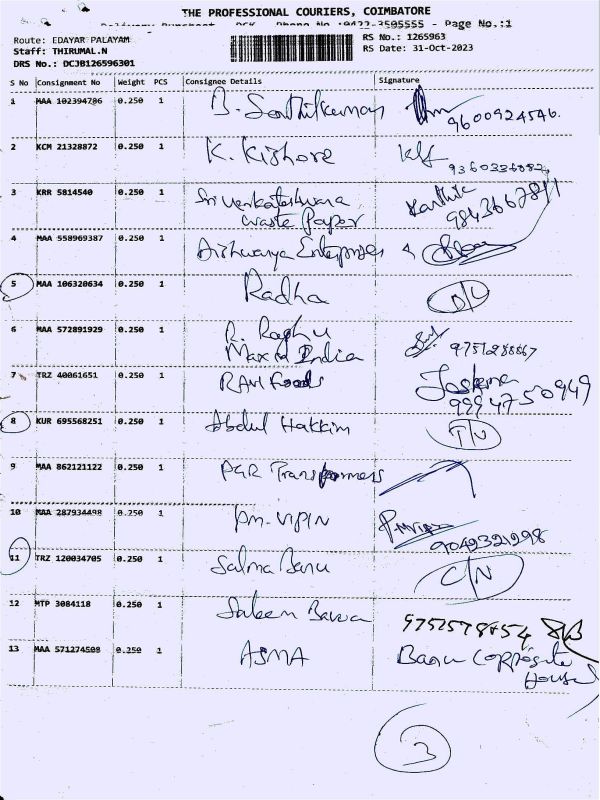 THE PROFESSIONAL COURIERS, COIMBATORE
Page No.:1
Route: EDAYAR PALAYAM
RS No.: 1265963
Staff: THIRUMAL.N
RS Date: 31-Oct-2023
DRS No.: DCJB126596301
S No Consignment No Weight PCS Consignee Details Signature
1 MAA 102394786 0.250 1 B. Senthilkumar 9600924546.
2 KCM 21328872 0.250 1 K. Kishore
3 KRR 5814540 0.250 1 Sri Venkateshwara Karthik
waste Paper
4 MAA 558969387 0.250 1 Aishwarya Enterprises
5 MAA 106320634 0.250 1 Radha D/L
6 MAA 572891929 0.250 1 R. Raghu
India
7 TRZ 40061651 0.250 1 RAVI Foods
9994750949
8 KUR 695568251 0.250 1 Abdul Hakkim
9 MAA 862121122 0.250 1 PGR Transformers
10 MAA 287934498 0.250 1 PM-VIPIN
9042321298
11 TRZ 120034705 0.250 1 Salma Banu C/N
12 MTP 3084118 0.250 1 Saleem Bawa
13 MAA 571274508 0.250 1 ASMA Banu Opposite
House
3